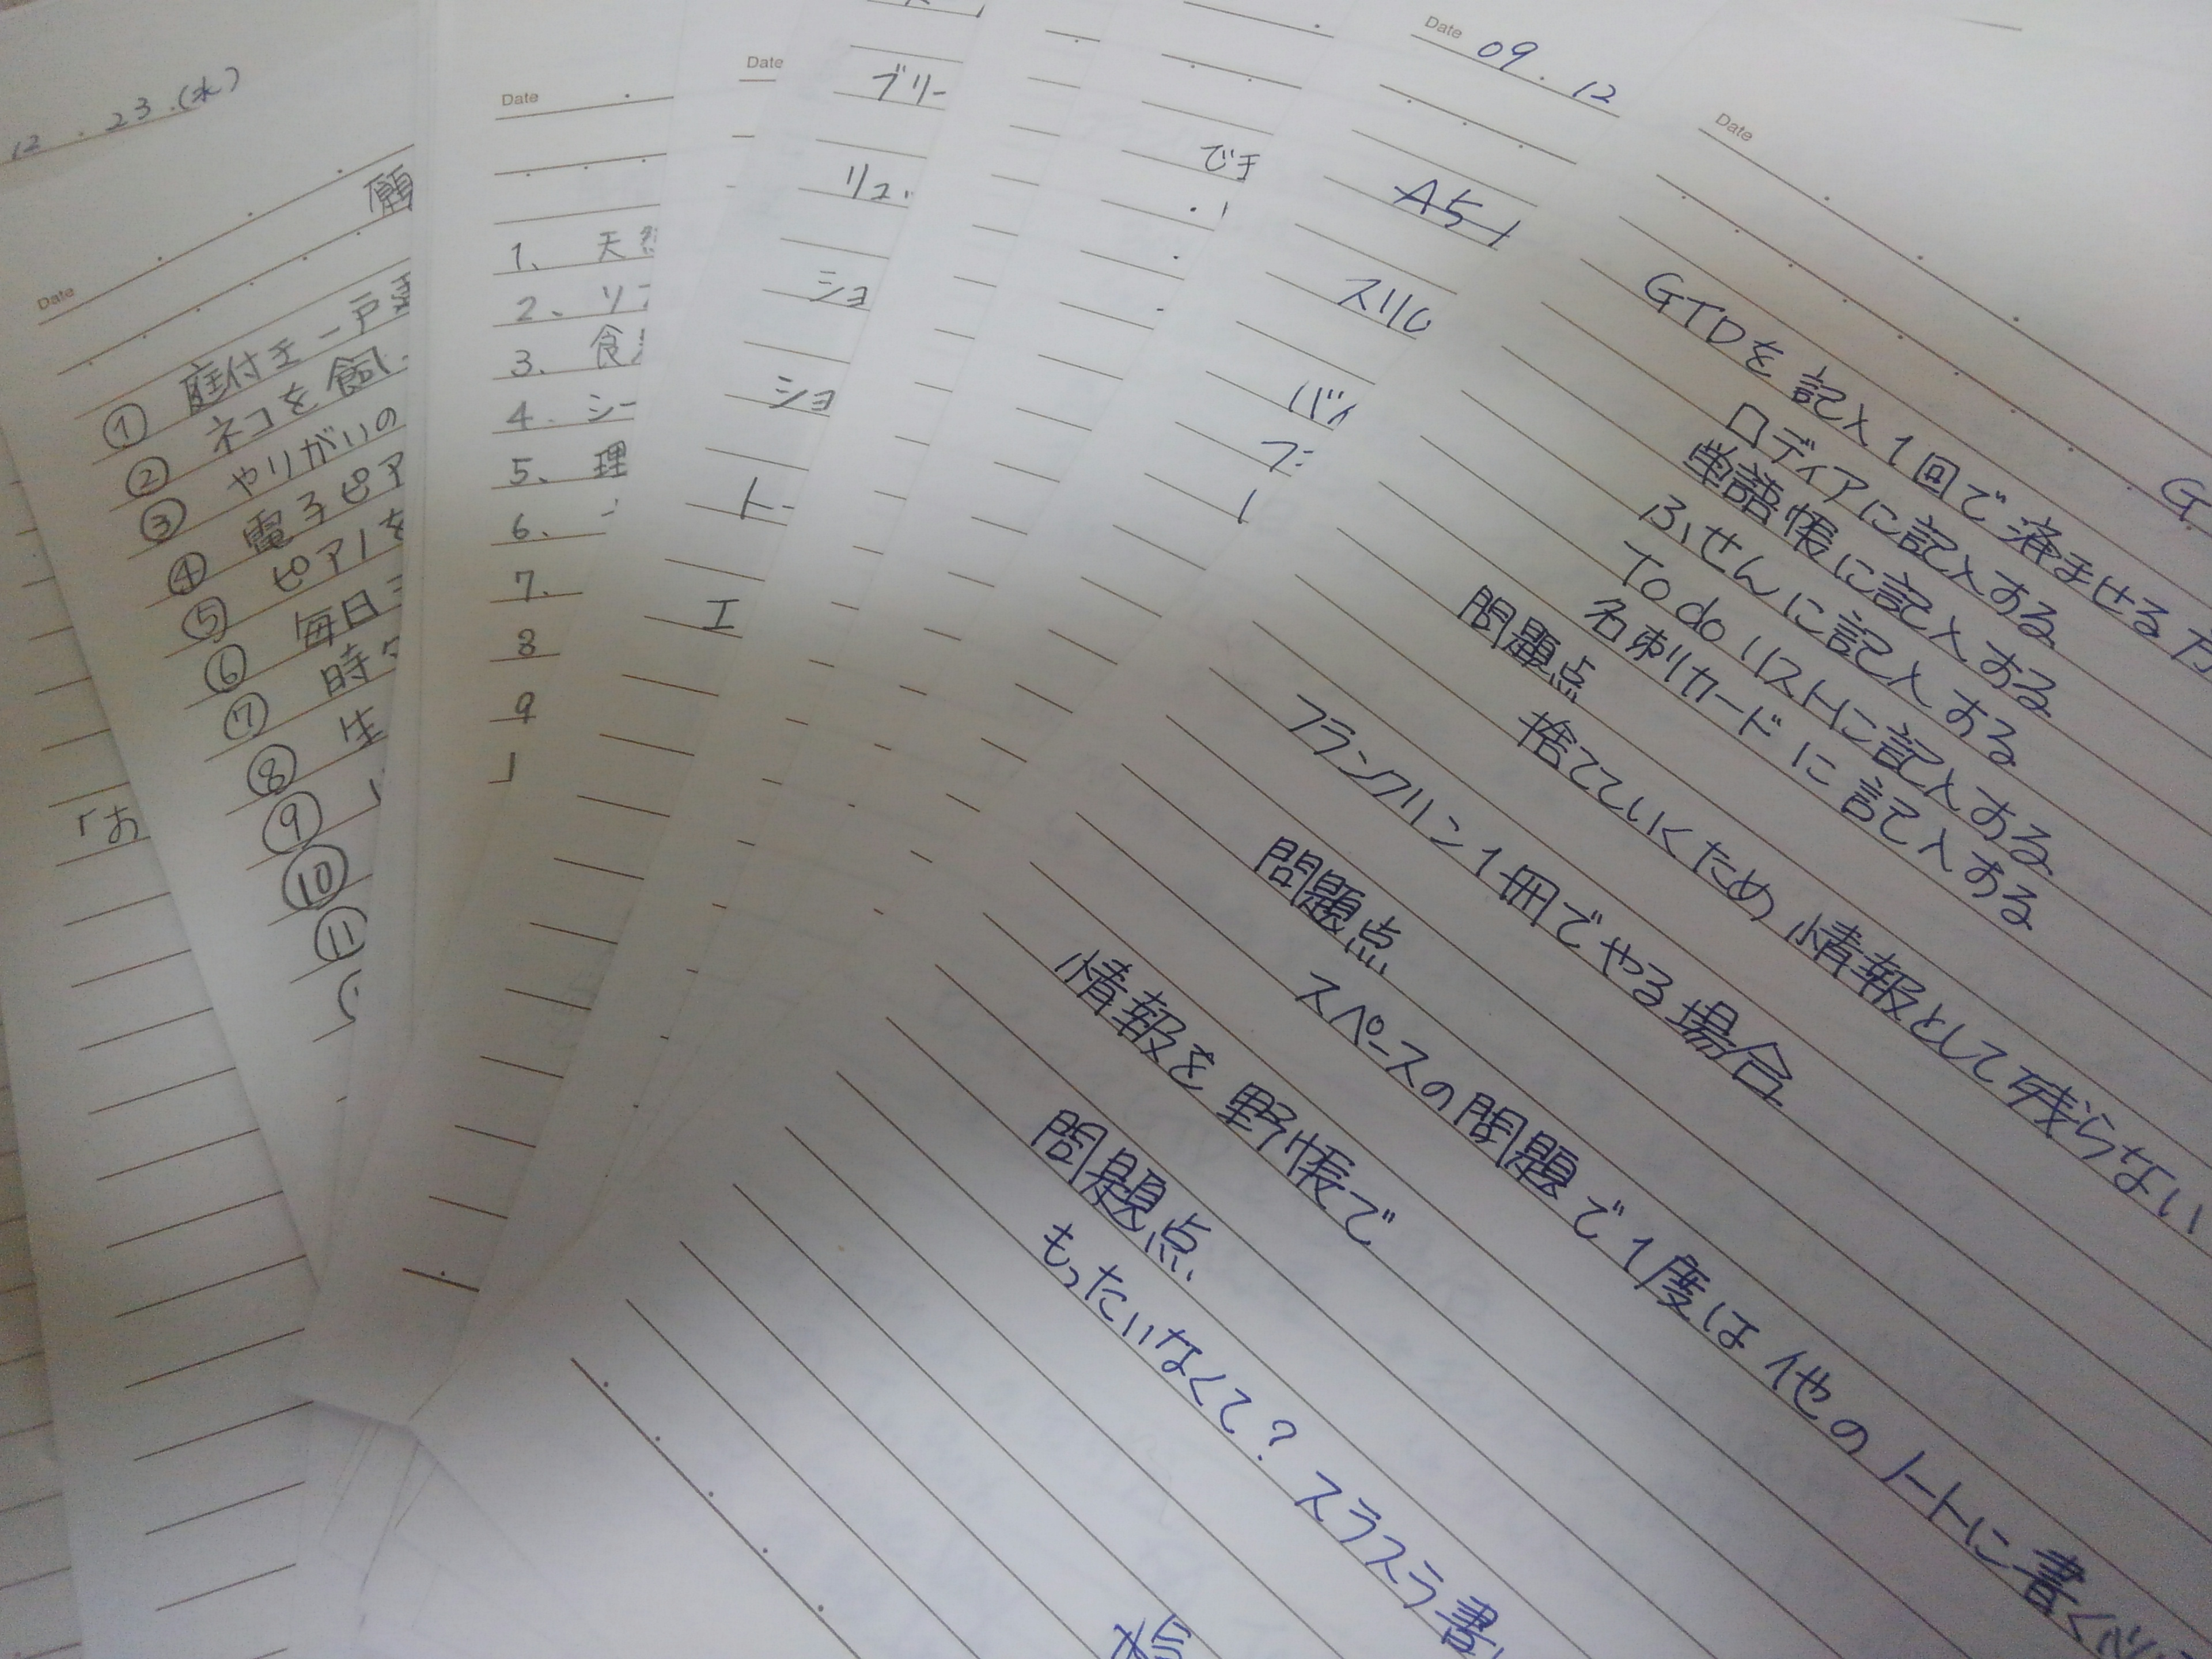 12.23.(水)
「お
Date
願
① 庭付き一戸建
② ネコを飼
③ やりがいの
④ 電子ピア
⑤ ピアノを
⑥ 毎日
⑦ 時々
⑧ 生
⑨
⑩
⑪
Date
1、天然
2、リ
3、食
4.シー
5、理
6、
7、
8
9
Date
ブリー
リュ
ショ
ショ
ト
エ
でき
Date 09.12
A5
スリ
バイ
フ
Date
G
GTDを記入1回で済ませる方
ロディアに記入する
単語帳に記入する
ふせんに記入する
To doリストに記入する
名刺カードに記入する
問題点
捨てていくため 情報として残らない
フランクリン1冊でやる場合
問題点
スペースの問題で1度は他のノートに書く必
情報を野帳で
問題点
もったいなくて？スラスラ書